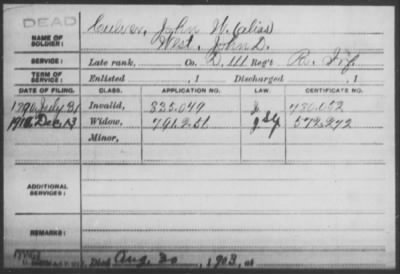 DEAD
NAME OF SOLDIER:
Culver, John W. alias
West, John D.
SERVICE:
Late rank, Co. D, 111 Reg't R. Inf.
TERM OF SERVICE:
Enlisted , 1 Discharged , 1
DATE OF FILING. CLASS. APPLICATION NO. LAW. CERTIFICATE NO.
1890 July 21 Invalid, 835.049
Widow, 791.251 572.272
Minor,
ADDITIONAL SERVICES:
REMARKS:
Died Aug. 20, 1903, at